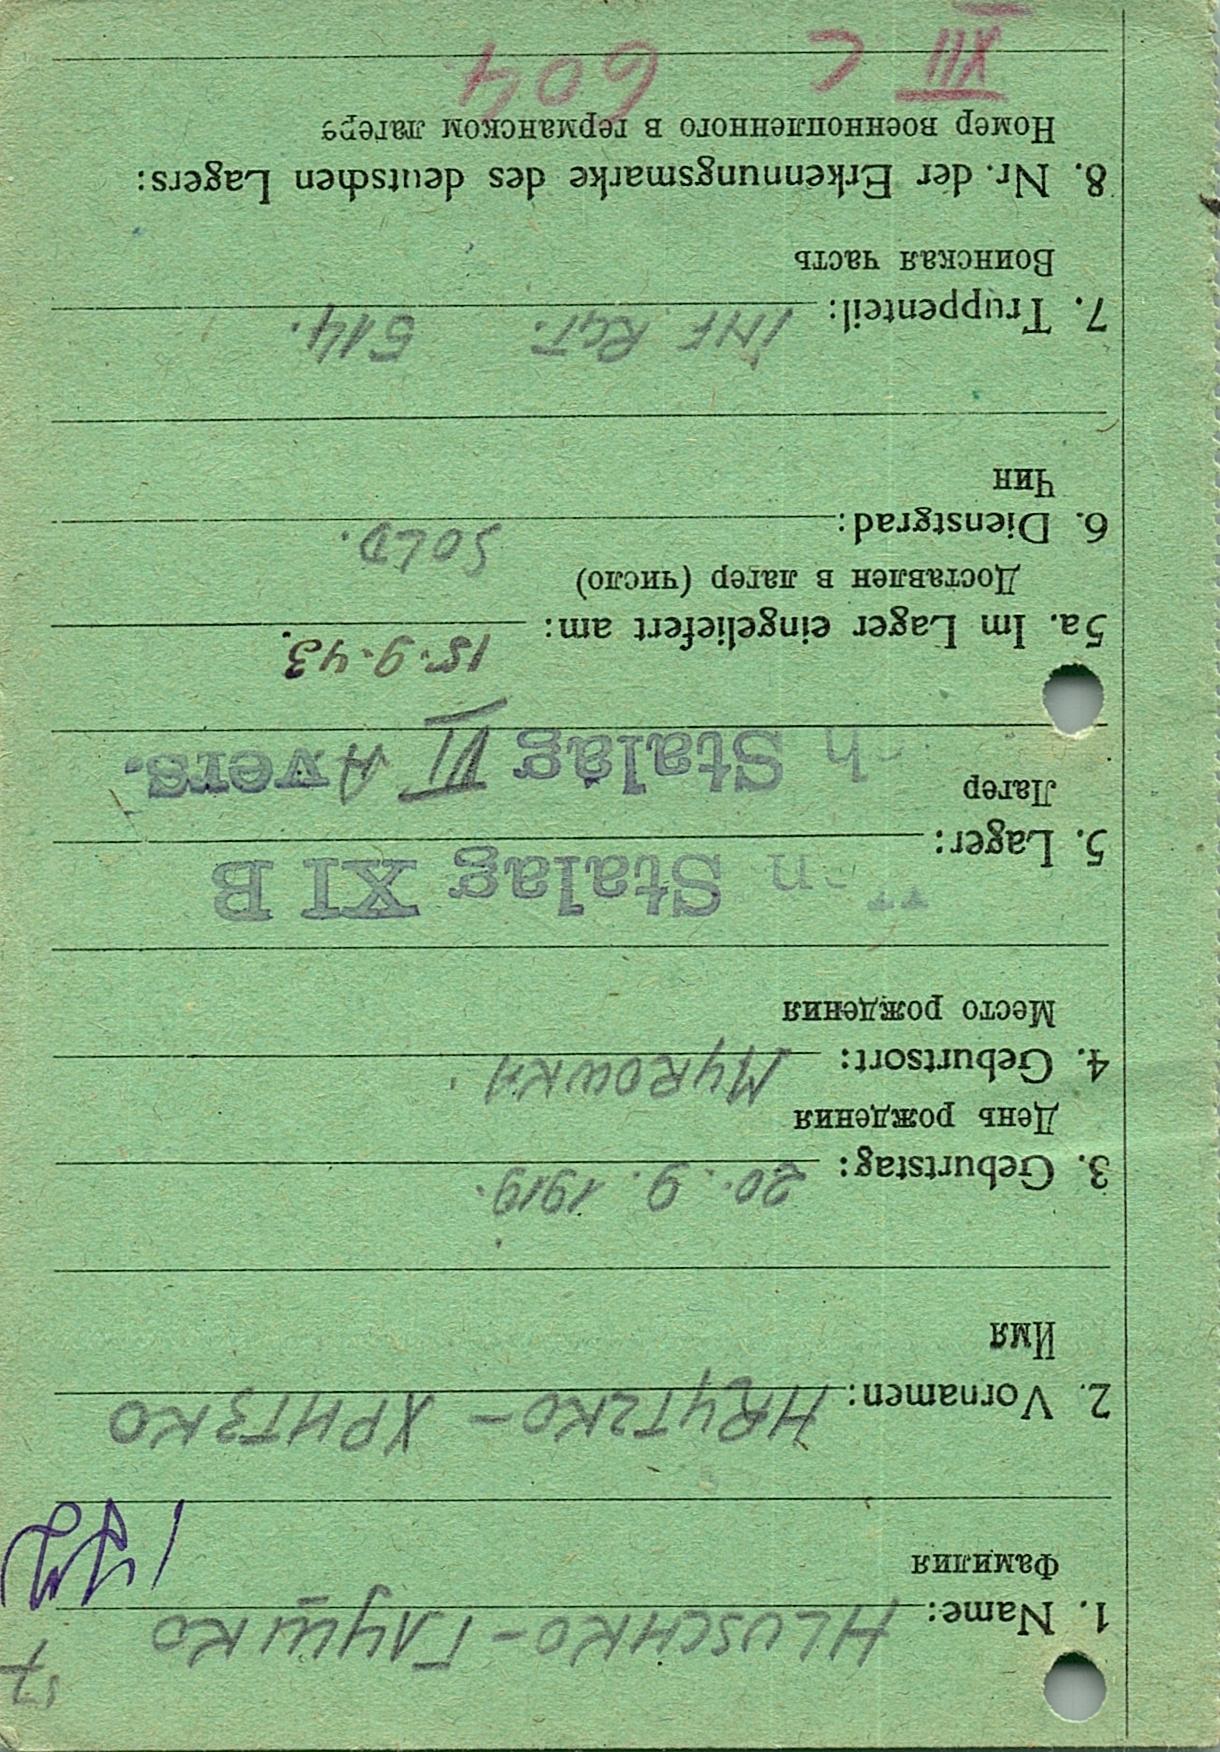 1. Name: HLUSCHKO - ГЛУШКО
Фамилия
2. Vornamen: HRYTZKO - ХРИТЗКО
Имя
3. Geburtstag: 20. 9. 1919.
День рождения
4. Geburtsort: MYROWKA.
Место рождения
Stalag XI B
5. Lager:
Лагер
Stalag VI A vers.
5a. Im Lager eingeliefert am: 15.9.43.
Доставлен в лагер (число)
6. Dienstgrad: SOLD.
Чин
7. Truppenteil: INF RGT. 514.
Воинская часть
8. Nr. der Erkennungsmarke des deutschen Lagers:
Номер военнопленного в германском лагере
XII C 604